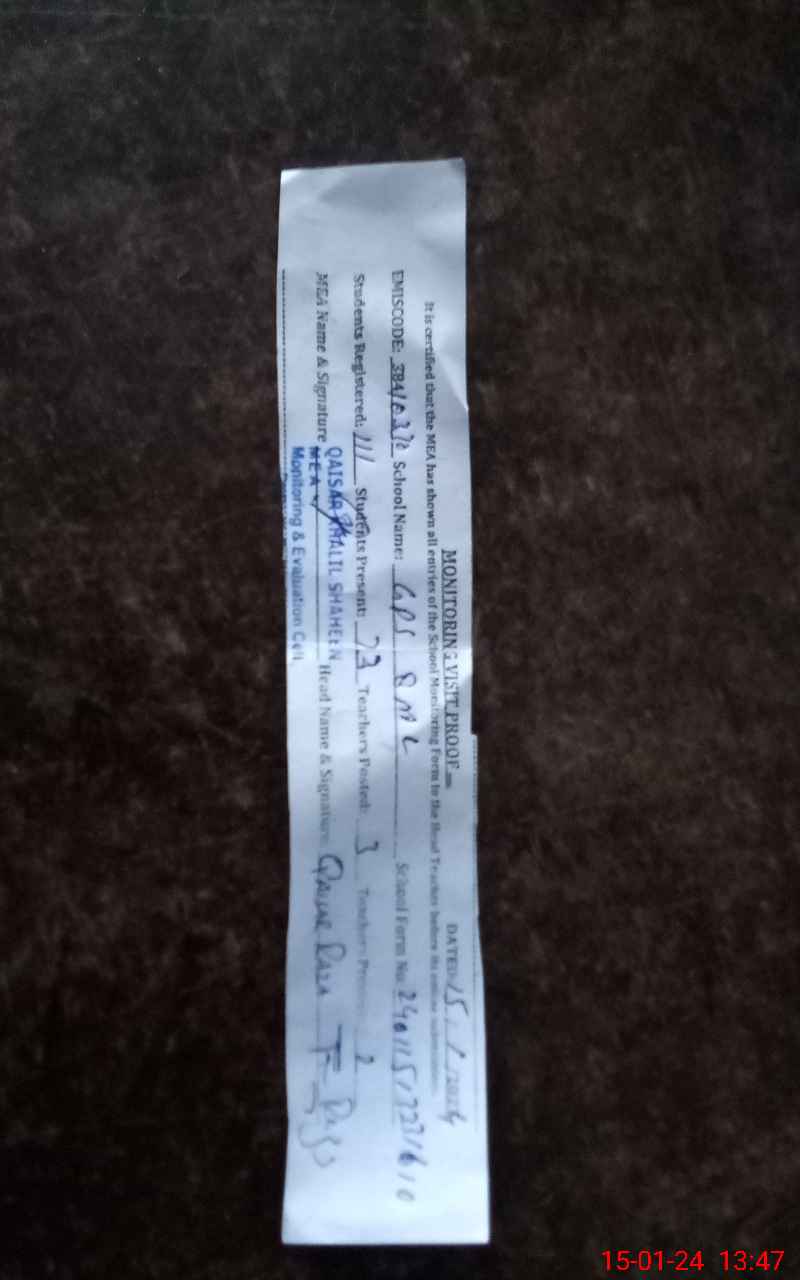 MONITORING VISIT PROOF DATED: 15/1/2024
It is certified that the MEA has shown all entries of the School Monitoring Form to the Head Teacher before
EMISCODE: School Name: GPS School Form No:
Students Registered: 111 Students Present: 73 Teachers Posted: 3 Teachers 2
MEA Name & Signature QAISAR KHALIL SHAHEEN Head Name & Signature: QAISAR RAZA
MEA
Monitoring & Evaluation Cell
15-01-24 13:47